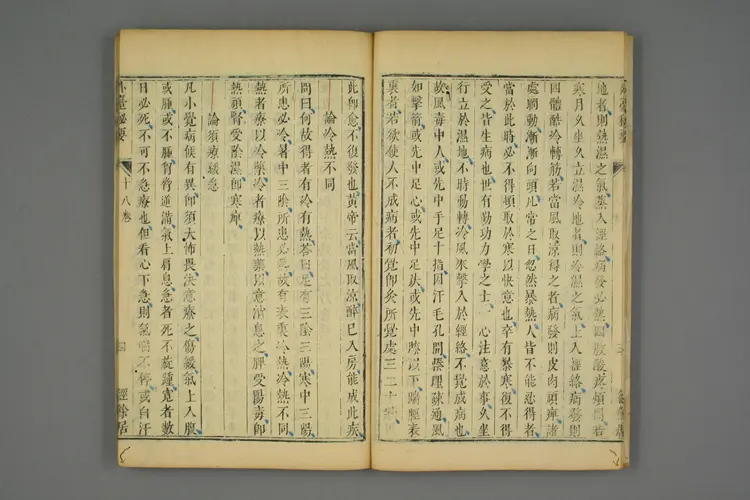 地者則熱濕之氣蒸入經絡病發必熱四肢酸疼煩悶若
寒月久坐久立濕冷地者則冷濕之氣上入經絡病發則
四體酷冷轉筋若當風取涼得之者病發則皮肉頑痹諸
處瞤動漸漸向頭凡常之日忽然暴熱人皆不能忍得者
當於此時必不得頓取於寒以快意也卒有暴寒復不得
受之皆生病也世有勤功力學之士一心注意於事久坐
行立於濕地不時動轉冷風來擊入於經絡不覺成病也
故風毒中人或先中手足十指因汗毛孔開腠理疎通風
如擊箭或先中足心或先中足趺或先中膝以下腨脛表
裏者若欲使人不成病者初覺即灸所覺處三二十壯
此即愈不復發也黃帝云當風取涼醉已入房能成此疾
論冷熱不同
問曰何故得者有冷有熱答曰足有三陰三陽寒中三陽
所患必冷暑中三陰所患必熱故有表裏冷熱冷熱不同
熱者療以冷藥冷者療以熱藥以意消息之脾受陽毒即
熱頑腎受陰濕即寒痺
論須療緩急
凡小覺病候有異即須大怖畏決意療之傷緩氣上入腹
或腫或不腫胷脅逆滿氣上肩息急者死不旋踵寬者數
日必死不可不急療也但看心下急則氣喘不停或自汗
外臺秘要
十八卷
經餘居